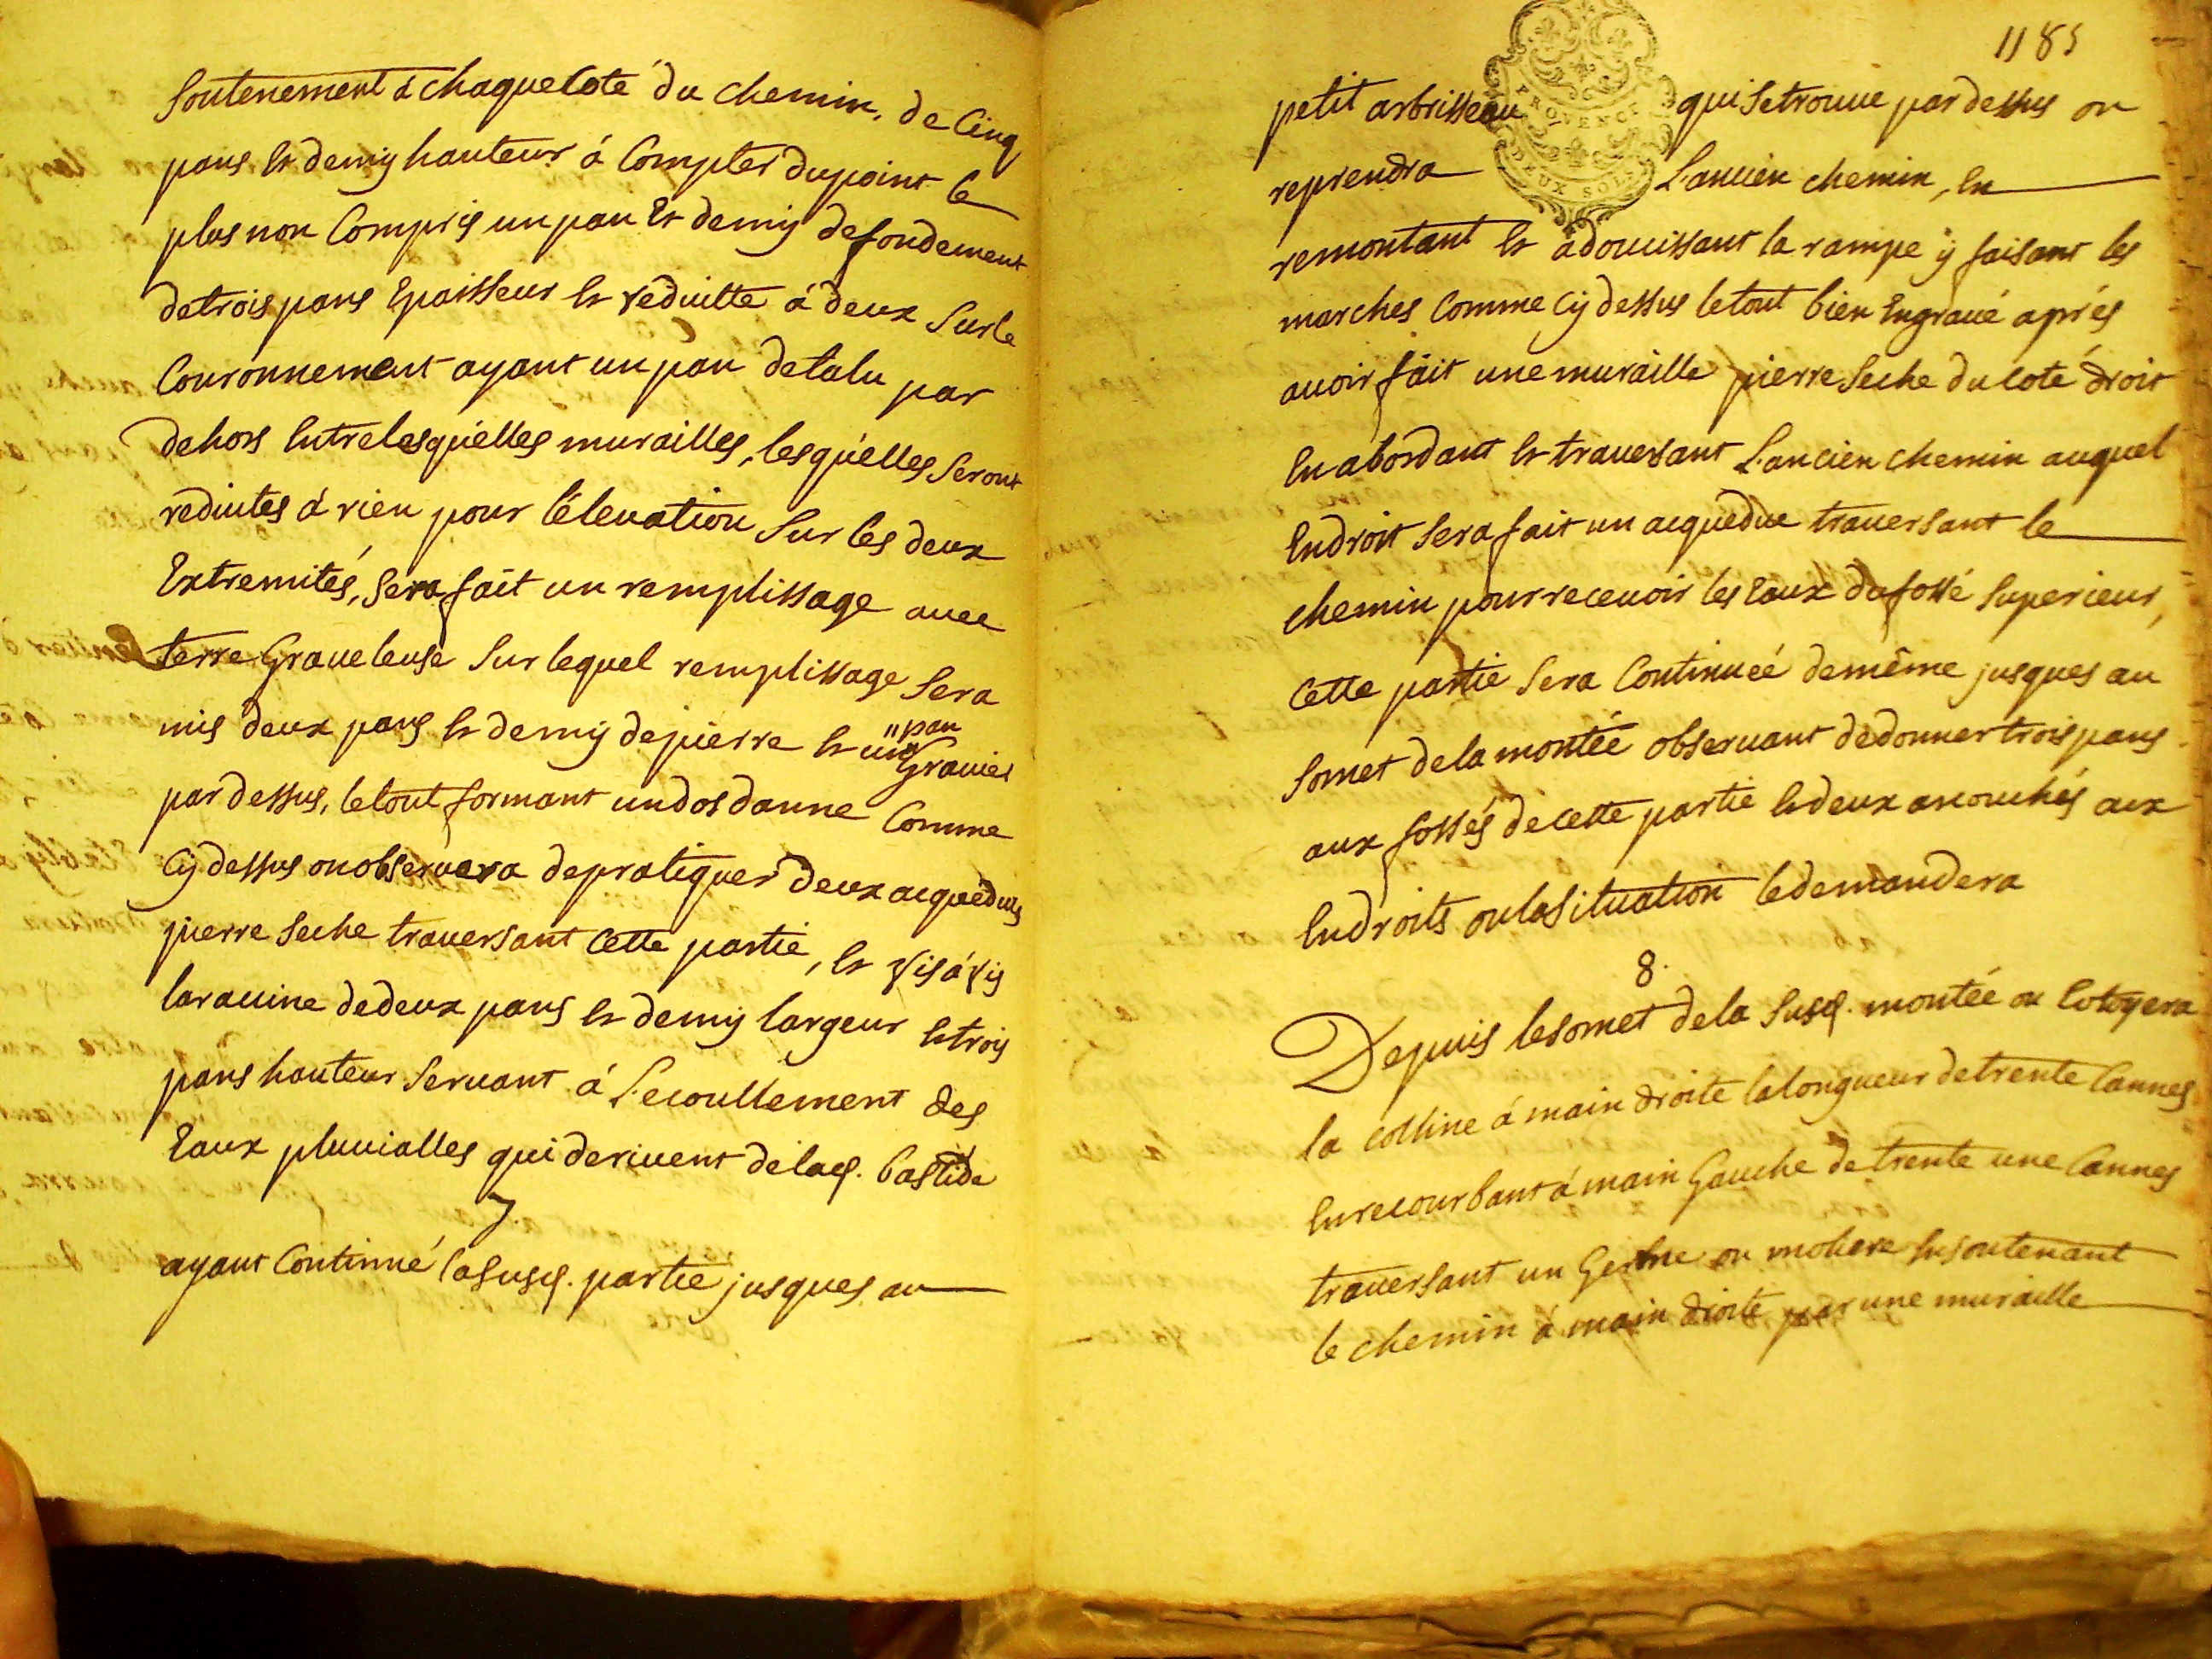 soutenement à chaque coté du chemin, de Cinq
pans et demy hauteur á Compter du point le
plus non Compris un pan Et demy de fondement
de trois pans Epaisseur et reduitte á deux sur le
Couronnement ayant un pan de talu par
dehors Entre lesquelles murailles, lesquelles seront
reduites á rien pour l'élevation sur les deux
Extremités, sera fait un remplissage avec
terre Graveleuse sur lequel remplissage sera
mis deux pans et demy de pierre et un pan Gravier
par dessus, le tout formant un dos danne Comme
Cy dessus on observera de pratiquer deux acqueducs
pierre seche traversant Cette partie, et vis á vis
la ravine de deux pans et demy largeur et trois
pans hauteur servant á L'ecoullement des
Eaux pluvialles qui derivent de la q. bastide
7.
ayant Continué la susq. partie jusques au
1185
petit arbrisseau qui se trouve par dessus on
PROVENCE
DEUX SOLS
reprendra L'ancien chemin, En
remontant et adoucissant la rampe ÿ faisant les
marches Comme Cy dessus le tout bien Engravé aprés
avoir fait une muraille pierre seche du coté droit
En abordant et traversant L'ancien chemin auquel
Endroit sera fait un acqueduc traversant le
chemin pour recevoir les Eaux du fossé superieur,
Cette partie sera Continuéé de même jusques au
somet de la montéé observant de donner trois pans
aux fossés de cette partie et deux aux
Endroits ou la situation le demandera
8.
Depuis le somet de la susq. montée on Cotoyera
la colline á main droite la longueur de trente Cannes
En recourbant á main Gauche de trente une Cannes
traversant un ou En soutenant
le chemin á main droite par une muraille